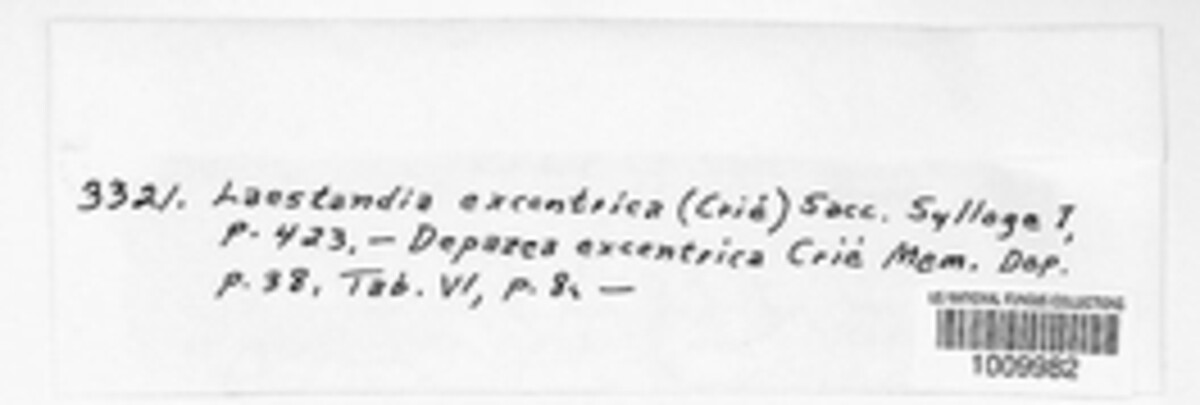 3321. Laestandia excentrica (Crié) Sacc. Sylloge I,
p. 423. — Depazea excentrica Crié Mem. Dep.
p. 38. Tab. VI, p. 8. —
US NATIONAL FUNGUS COLLECTIONS
1009982